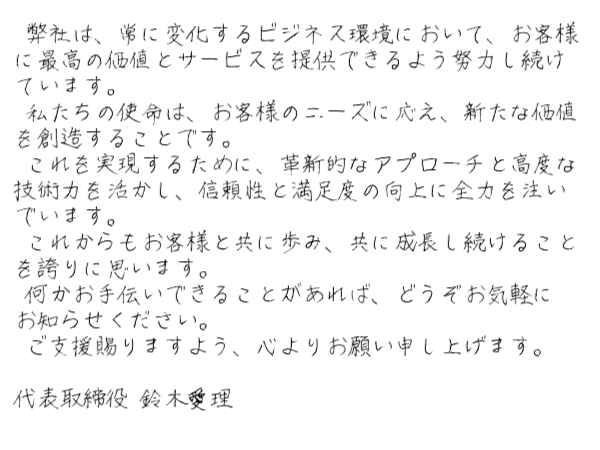 弊社は、常に変化するビジネス環境において、お客様
に最高の価値とサービスを提供できるよう努力し続け
ています。
私たちの使命は、お客様のニーズに応え、新たな価値
を創造することです。
これを実現するために、革新的なアプローチと高度な
技術力を活かし、信頼性と満足度の向上に全力を注い
でいます。
これからもお客様と共に歩み、共に成長し続けること
を誇りに思います。
何かお手伝いできることがあれば、どうぞお気軽に
お知らせください。
ご支援賜りますよう、心よりお願い申し上げます。
代表取締役 鈴木愛理